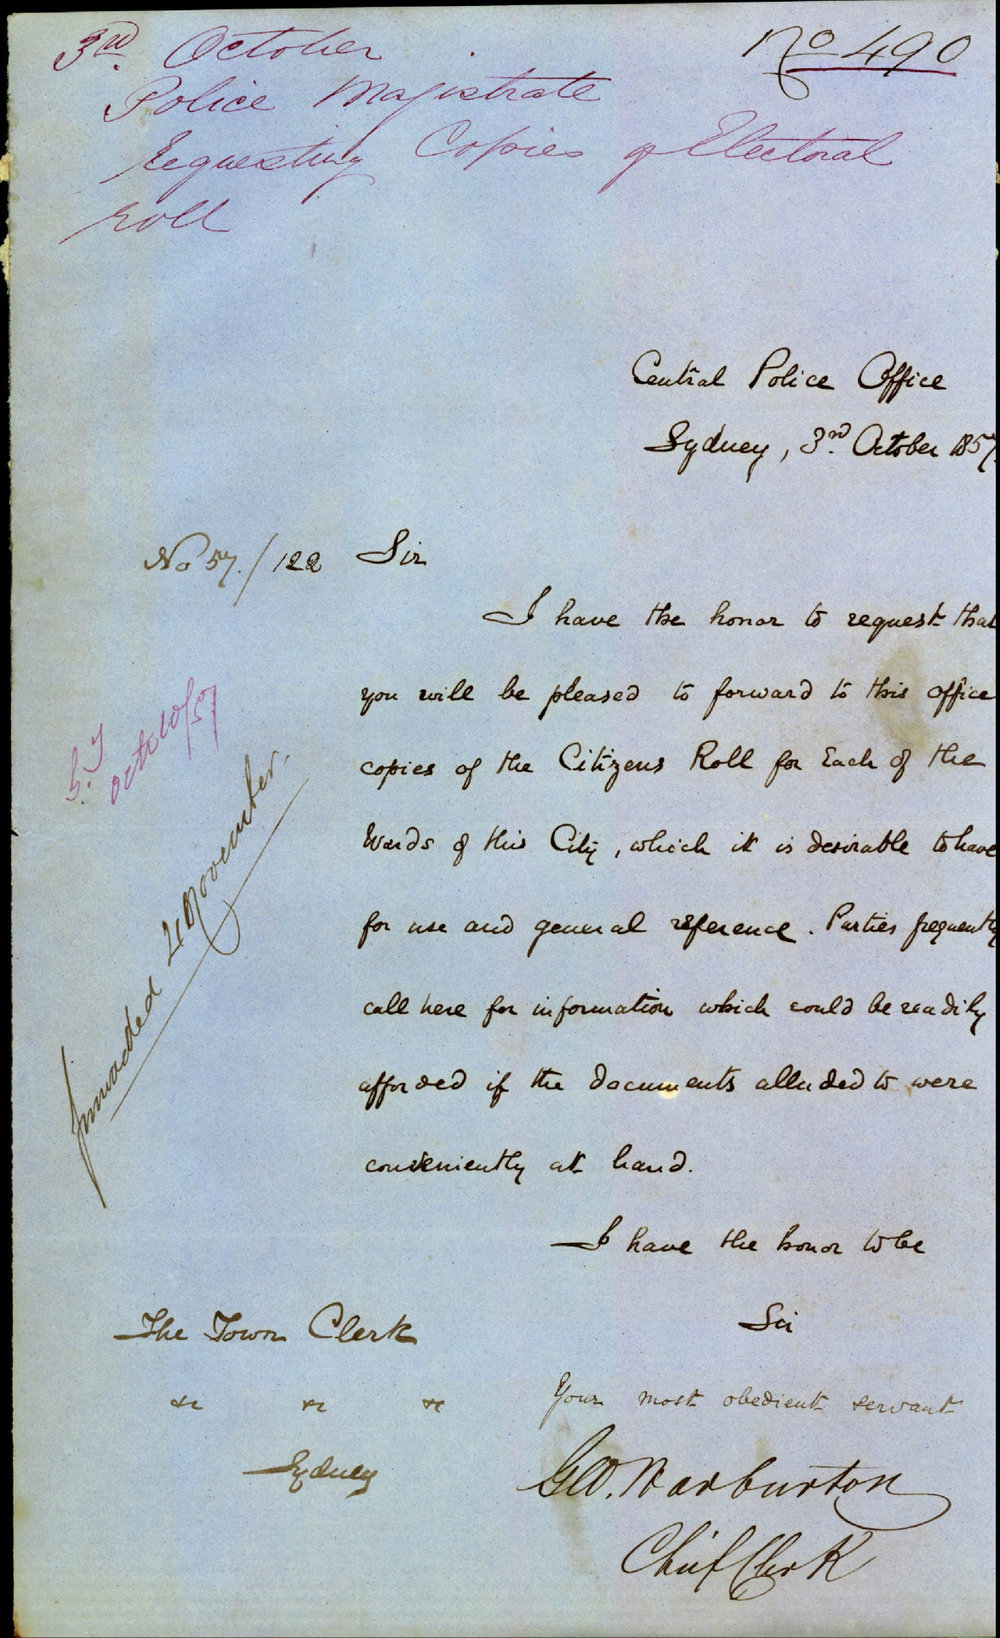 3rd. October
No 490
Police Magistrate
requesting Copies of Electoral
roll
Central Police Office
Sydney, 3rd. October 1857
No 57./122 Sir
I have the honor to request that
you will be pleased to forward to this office
copies of the Citizens Roll for Each of the
Wards of this City, which it is desirable to have
for use and general reference. Parties frequently
call here for information which could be readily
afforded if the documents alluded to were
conveniently at hand.
Octr 10/57
forwarded 4 November.
I have the honor to be
Sir
The Town Clerk
&c &c &c
Your most obedient servant
Sydney
Geo. Warburton
Chief Clerk